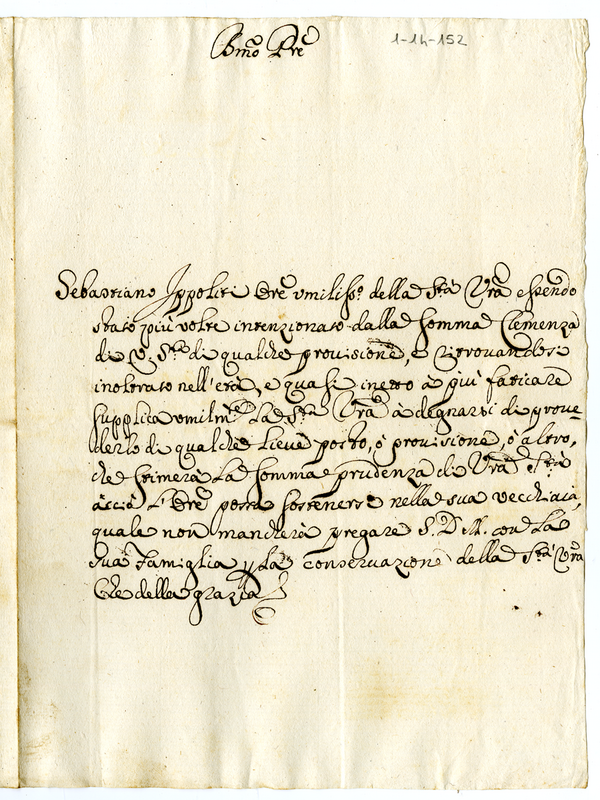 Bmo Pre
1-14-152
Sebastiano Ippoliti Ore umilisso. della Stà Vra essendo
stato più volte intenzionato dalla somma Clemenza
di V. Stà di qualche provisione, e ritrovandosi
inoltrato nell'età, e quasi inetto à più faticare
supplica umilmte La Stà Vra à degnarsi di prove-
derlo di qualche lieve posto, ò provisione, ò altro,
che stimerà La somma prudenza di Vra Stà
acciò L'Ore possa sostenersi nella sua vecchiaia,
quale non mancherà pregare S. D. M. con La
sua Famiglia p La conservazione della Stà Vra
Che della grazia